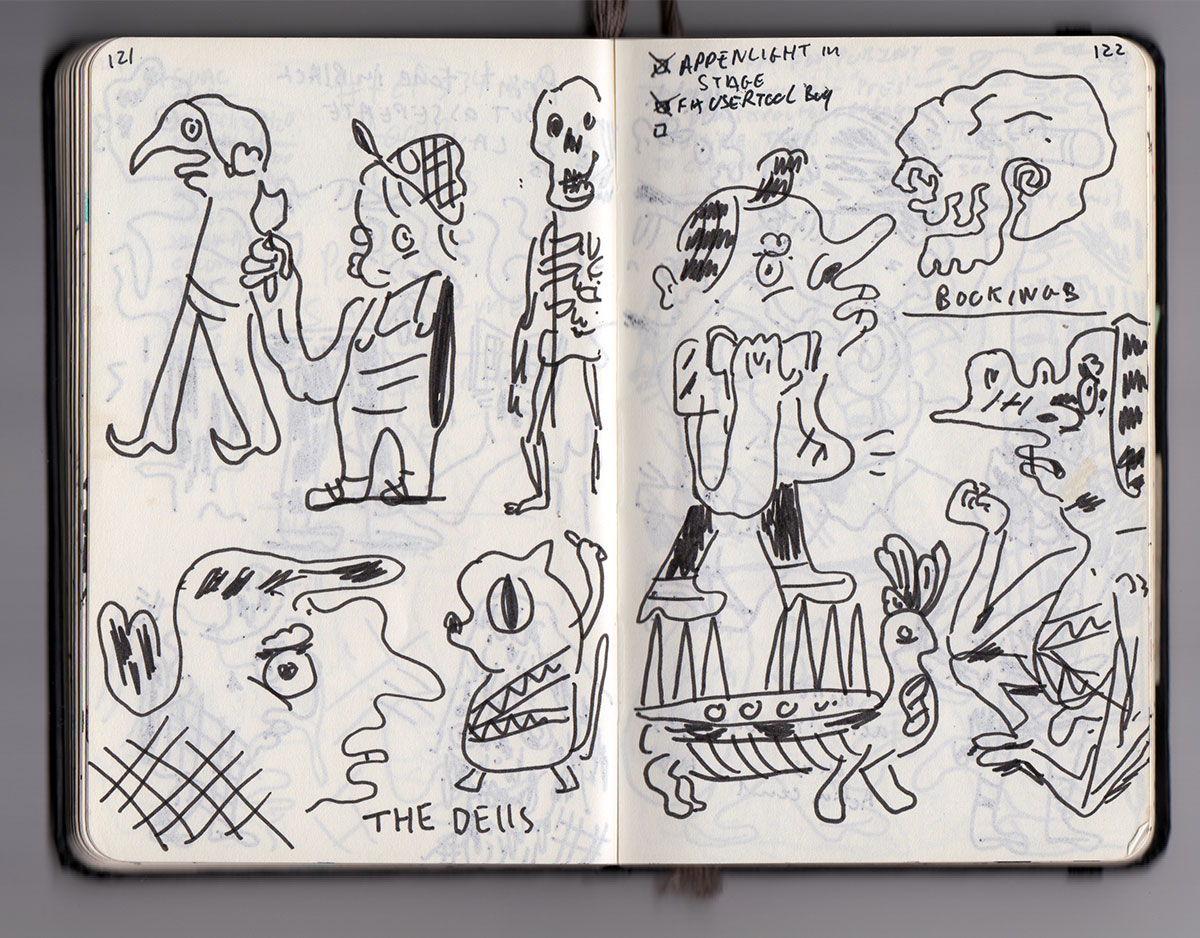 121
THE DEllS
APPENLIGHT in
STAGE
FIX USERTOOL Bug
122
BOCKINGS